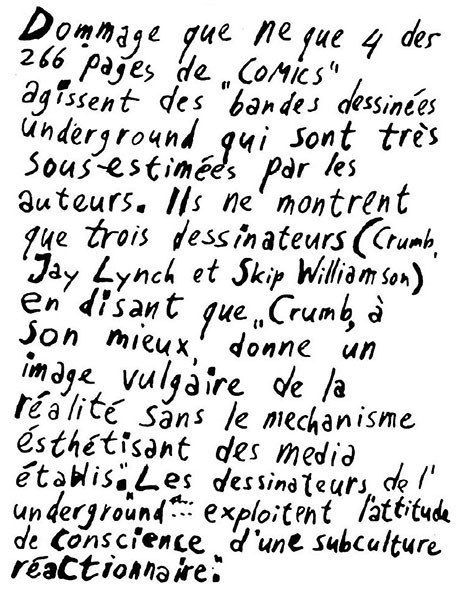 Dommage que ne que 4 des
266 pages de „COMICS"
agissent des bandes dessinées
underground qui sont très
sous-estimées par les
auteurs. Ils ne montrent
que trois dessinateurs (Crumb,
Jay Lynch et Skip Williamson)
en disant que „Crumb, à
son mieux, donne un
image vulgaire de la
réalité sans le mechanisme
ésthétisant des media
établis". Les dessinateurs de l'
underground exploitent l'attitude
de conscience d'une subculture
réactionnaire".